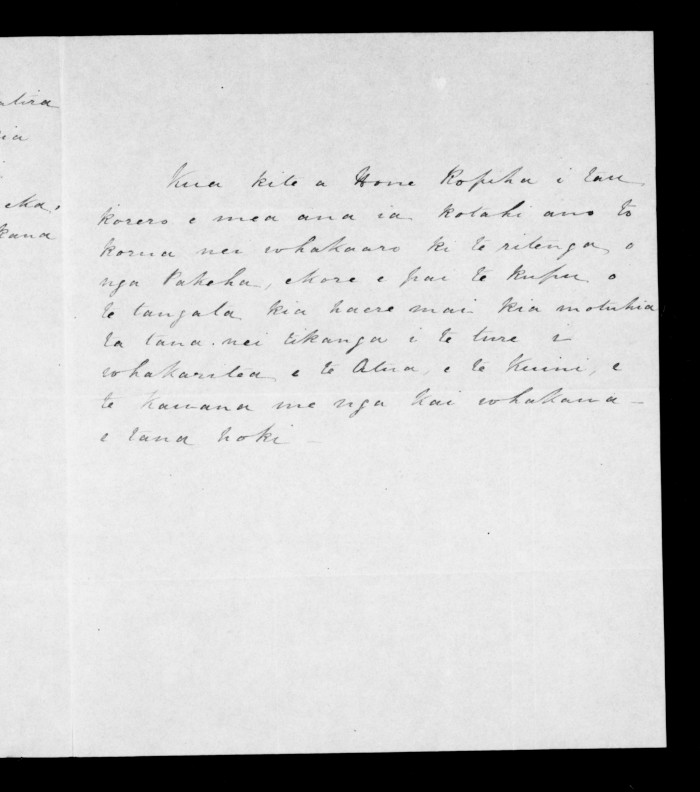 atira
ia
eka,
kana
Kua kite a Hone Ropiha i tau
korero e mea ana ia kotahi ano to
korua nei whakaaro ki te ritenga o
nga Pakeha, ekore e pai te kupu o
te tangata kia haere mai kia motuhia
ta tana nei tikanga i te ture i
whakaritea e te Atua, e te Kuini, e
te Kawana me nga kai whakawa –
e tana hoki –